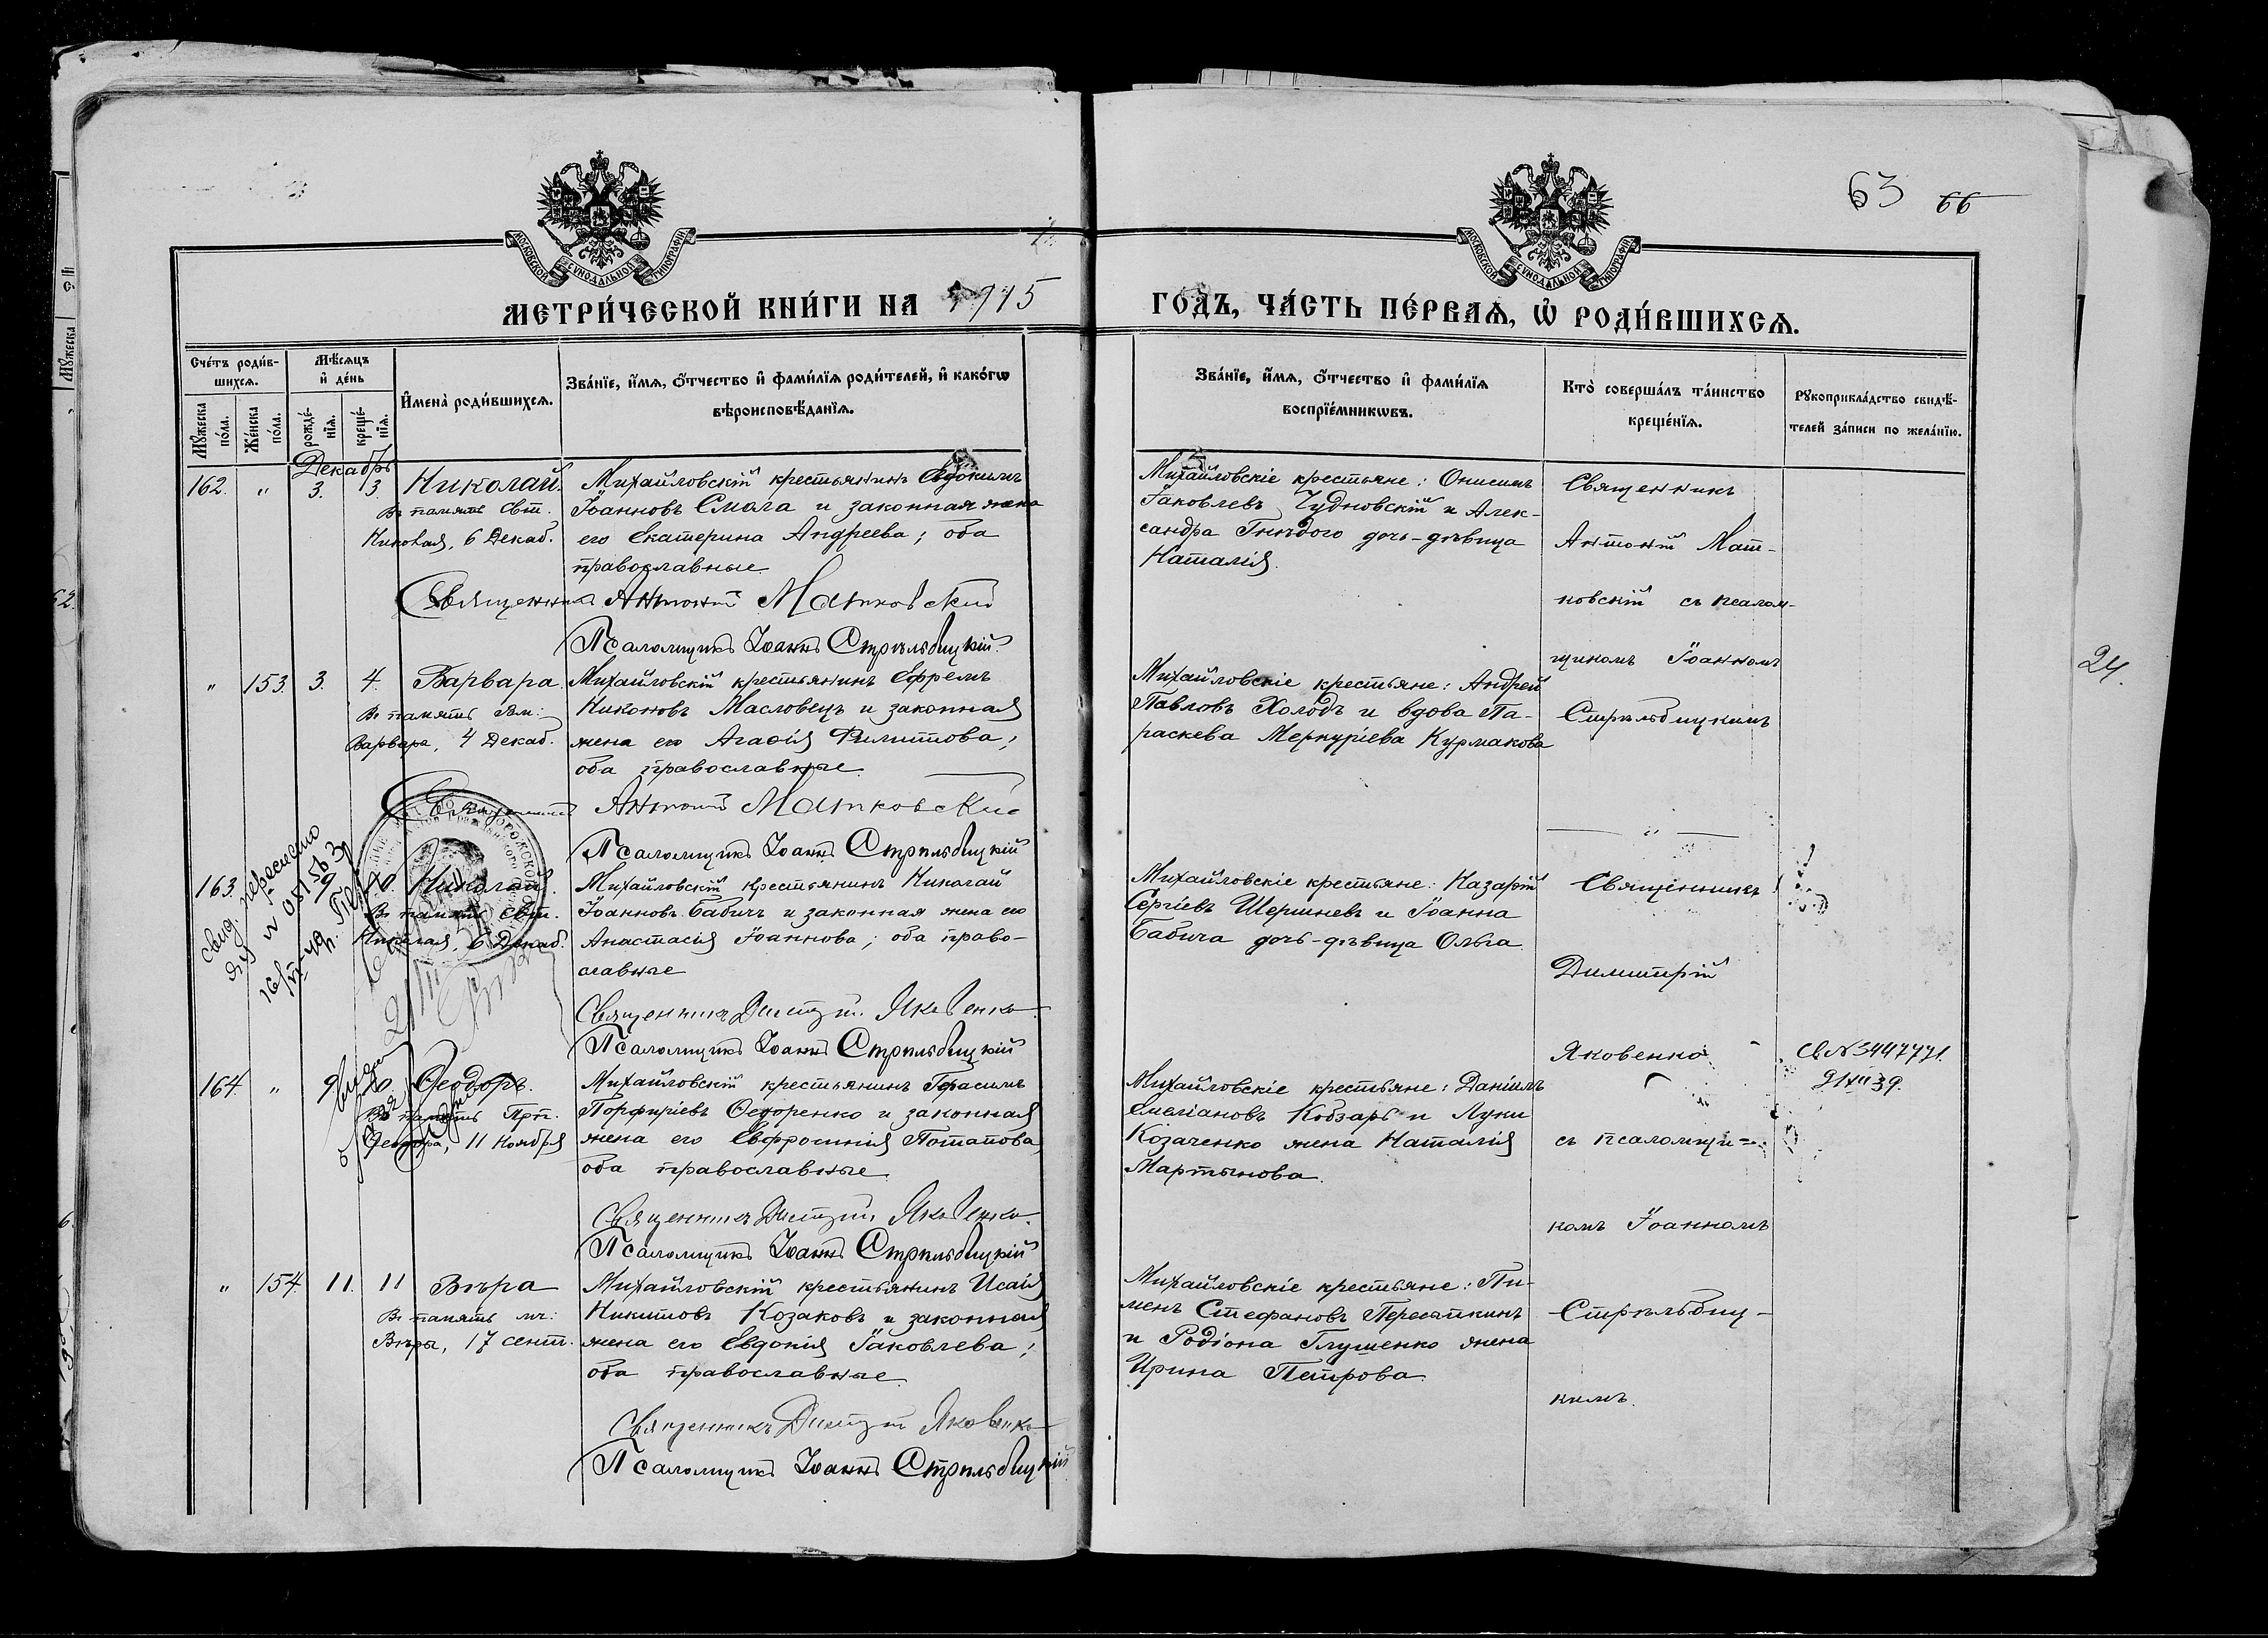 63 66
МОСКОВСКОЙ СѴНОДАЛЬНОЙ ТИПОГРАФІИ
МОСКОВСКОЙ СѴНОДАЛЬНОЙ ТИПОГРАФІИ
МЕТРИ́ЧЕСКОЙ КНИ́ГИ НА 1915
ГОДЪ, ЧА́СТЬ ПЕ́РВАѦ, Ѡ҆ РОДИ́ВШИХСѦ.
Сче́тъ роди́в-
шихсѧ.
Мꙋ́жеска по́ла.
Же́нска по́ла.
Мѣ́сѧцъ
и҆ де́нь
рожде́-
нїѧ.
креще́-
нїѧ.
И҆мена̀ роди́вшихсѧ.
Зва́нїе, и҆́мѧ, ѻ҆́тчество и҆ фами́лїѧ роди́телей, и҆ како́гѡ
вѣроисповѣ́данїѧ.
Зва́нїе, и҆́мѧ, ѻ҆́тчество и҆ фами́лїѧ
воспрїе́мникѡвъ.
Кто̀ соверша́лъ та́инство
креще́нїѧ.
Рꙋкоприкла́дство свидѣ́-
телей за́писи по жела́нїю.
Декабрь
162. " 3. 3. Николай.
Въ память Свт.
Николая, 6 Декаб.
Михайловскій крестьянинъ Евдокимъ
Іоанновъ Смола и законная жена
его Екатерина Андреева; оба
православные.
Священникъ Антоній Матковскій
Псаломщикъ Іоаннъ Стрѣльбицкій.
Михайловскіе крестьяне: Онисимъ
Іаковлевъ Чудновскій и Алек-
сандра Гнѣдого дочь-дѣвица
Наталія.
Священникъ
Антоній Мат-
ковскій съ псалом-
щикомъ Іоанномъ
Стрѣльбицкимъ
" 153. 3. 4. Варвара.
Въ память Вм:
Варвара, 4 Декаб.
Михайловскій крестьянинъ Ефремъ
Никоновъ Масловецъ и законная
жена его Агафія Филиппова;
оба православные.
Священникъ Антоній Матковскій
Псаломщикъ Іоаннъ Стрѣльбицкій
Михайловскіе крестьяне: Андрей
Павловъ Холодъ и вдова Па-
раскева Меркуріева Курмакова
24.
163. Николай.
Въ память Свт.
Николая, 6 Декаб.
Михайловскій крестьянинъ Николай
Іоанновъ Бабичъ и законная жена его
Анастасія Іоаннова; оба право-
славные
Священникъ Димитрій Яковенко
Псаломщикъ Іоаннъ Стрѣльбицкій
Михайловскіе крестьяне: Назарій
Сергіевъ Шершневъ и Іоанна
Бабича дочь-дѣвица Ольга.
Священникъ
Димитрій
Яковенко
съ псаломщи-
комъ Іоанномъ
Стрѣльбиц-
кимъ.
164. " 9 Ѳеодоръ.
Въ память Прп.
Ѳеодора, 11 Ноября
Михайловскій крестьянинъ Герасимъ
Порфиріевъ Ѳедоренко и законная
жена его Евфросинія Потапова
оба православные.
Священникъ Димитрій Яковенко.
Псаломщикъ Іоаннъ Стрѣльбицкій
Михайловскіе крестьяне: Даніилъ
Емеліановъ Кобзарь и Луки
Козаченко жена Наталія
Мартынова.
" 154. 11. 11 Вѣра
Въ память мч:
Вѣры, 17 сент.
Михайловскій крестьянинъ Исаія
Никитовъ Козаковъ и законная
жена его Евдокія Іаковлева;
оба православные.
Священникъ Димитрій Яковенко
Псаломщикъ Іоаннъ Стрѣльбицкій
Михайловскіе крестьяне: Пи-
менъ Стефановъ Пересыпкинъ
и Родіона Глущенко жена
Ирина Петрова.